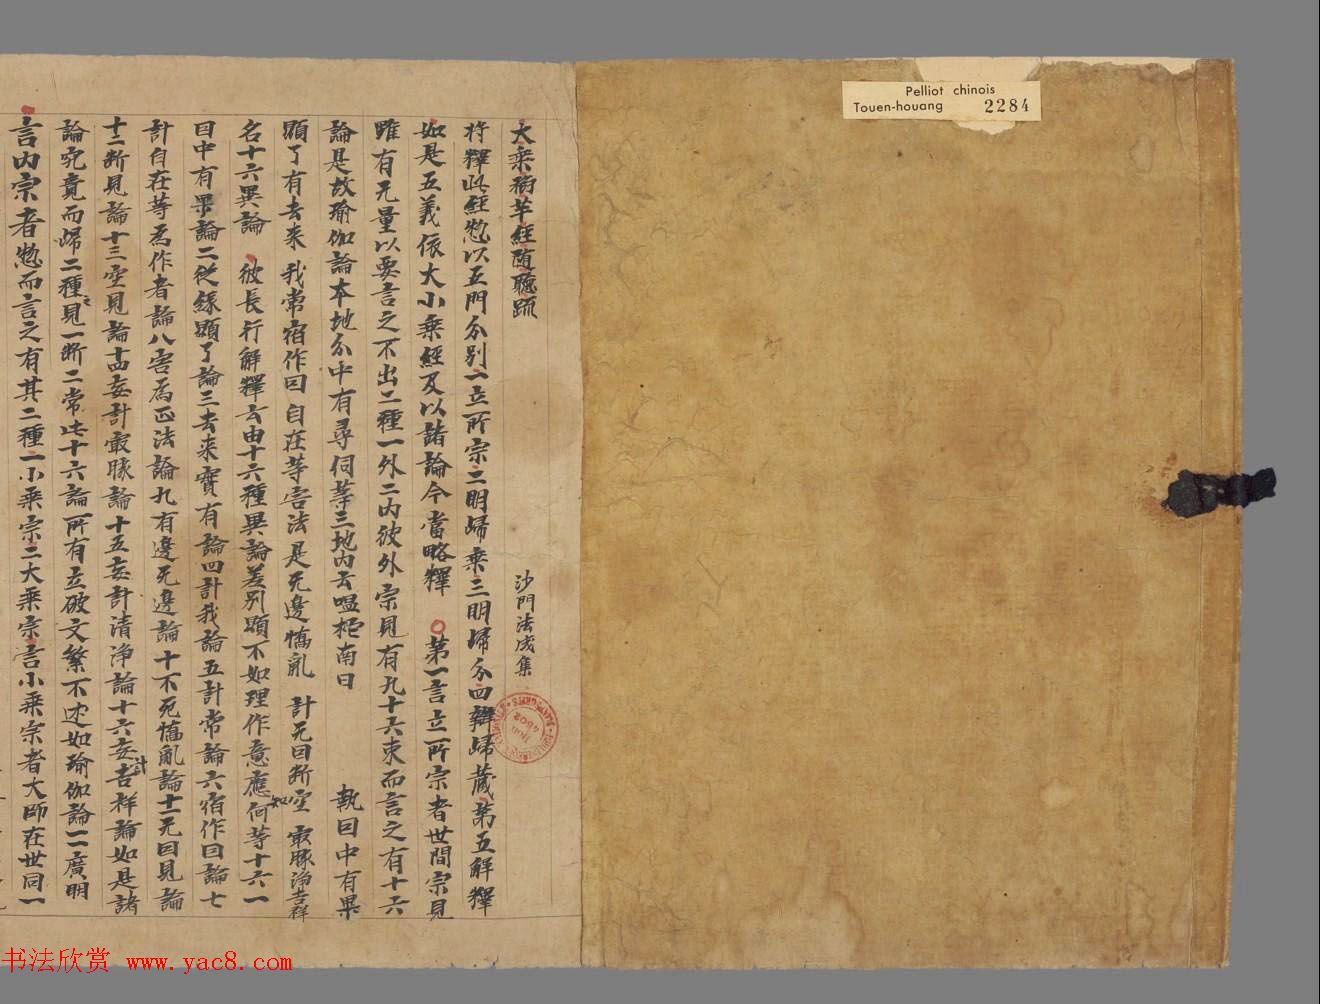 Pelliot chinois
Touen-houang 2284
大乘稻芉經随聽䟽
沙門法成集
将釋此經惣以五門分別一立所宗二明歸乘三明歸分四辯歸藏第五解釋
如是五義依大小乘經及以諸論今當略釋 第一言立所宗者世間宗見
雖有无量以要言之不出二種一外二内彼外宗見有九十六束而言之有十六
論是故瑜伽論本地分中有尋伺等三地内云嗢柁南曰 執因中有果
顯了有去来 我常宿作因 自在等害法 是无邊憍亂 計无因断空 㝡勝淨吉祥
名十六異論 彼長行解釋云由十六種異論差別顯不如理作意應知何等十六一
因中有果論二從緣顯了論三去来實有論四計我論五計常論六宿作因論七
計自在等為作者論八害為正法論九有邊无邊論十不死憍亂論十一无因見論
十二断見論十三空見論十四妄計㝡勝論十五妄計清淨論十六妄計吉祥論如是諸
論究竟而歸二種之見一断二常此十六論所有立破文繁不述如瑜伽論一一廣明
言内宗者惣而言之有其二種一小乘宗二大乘宗言小乘宗者大師在世同一
书法欣赏 www.yac8.com